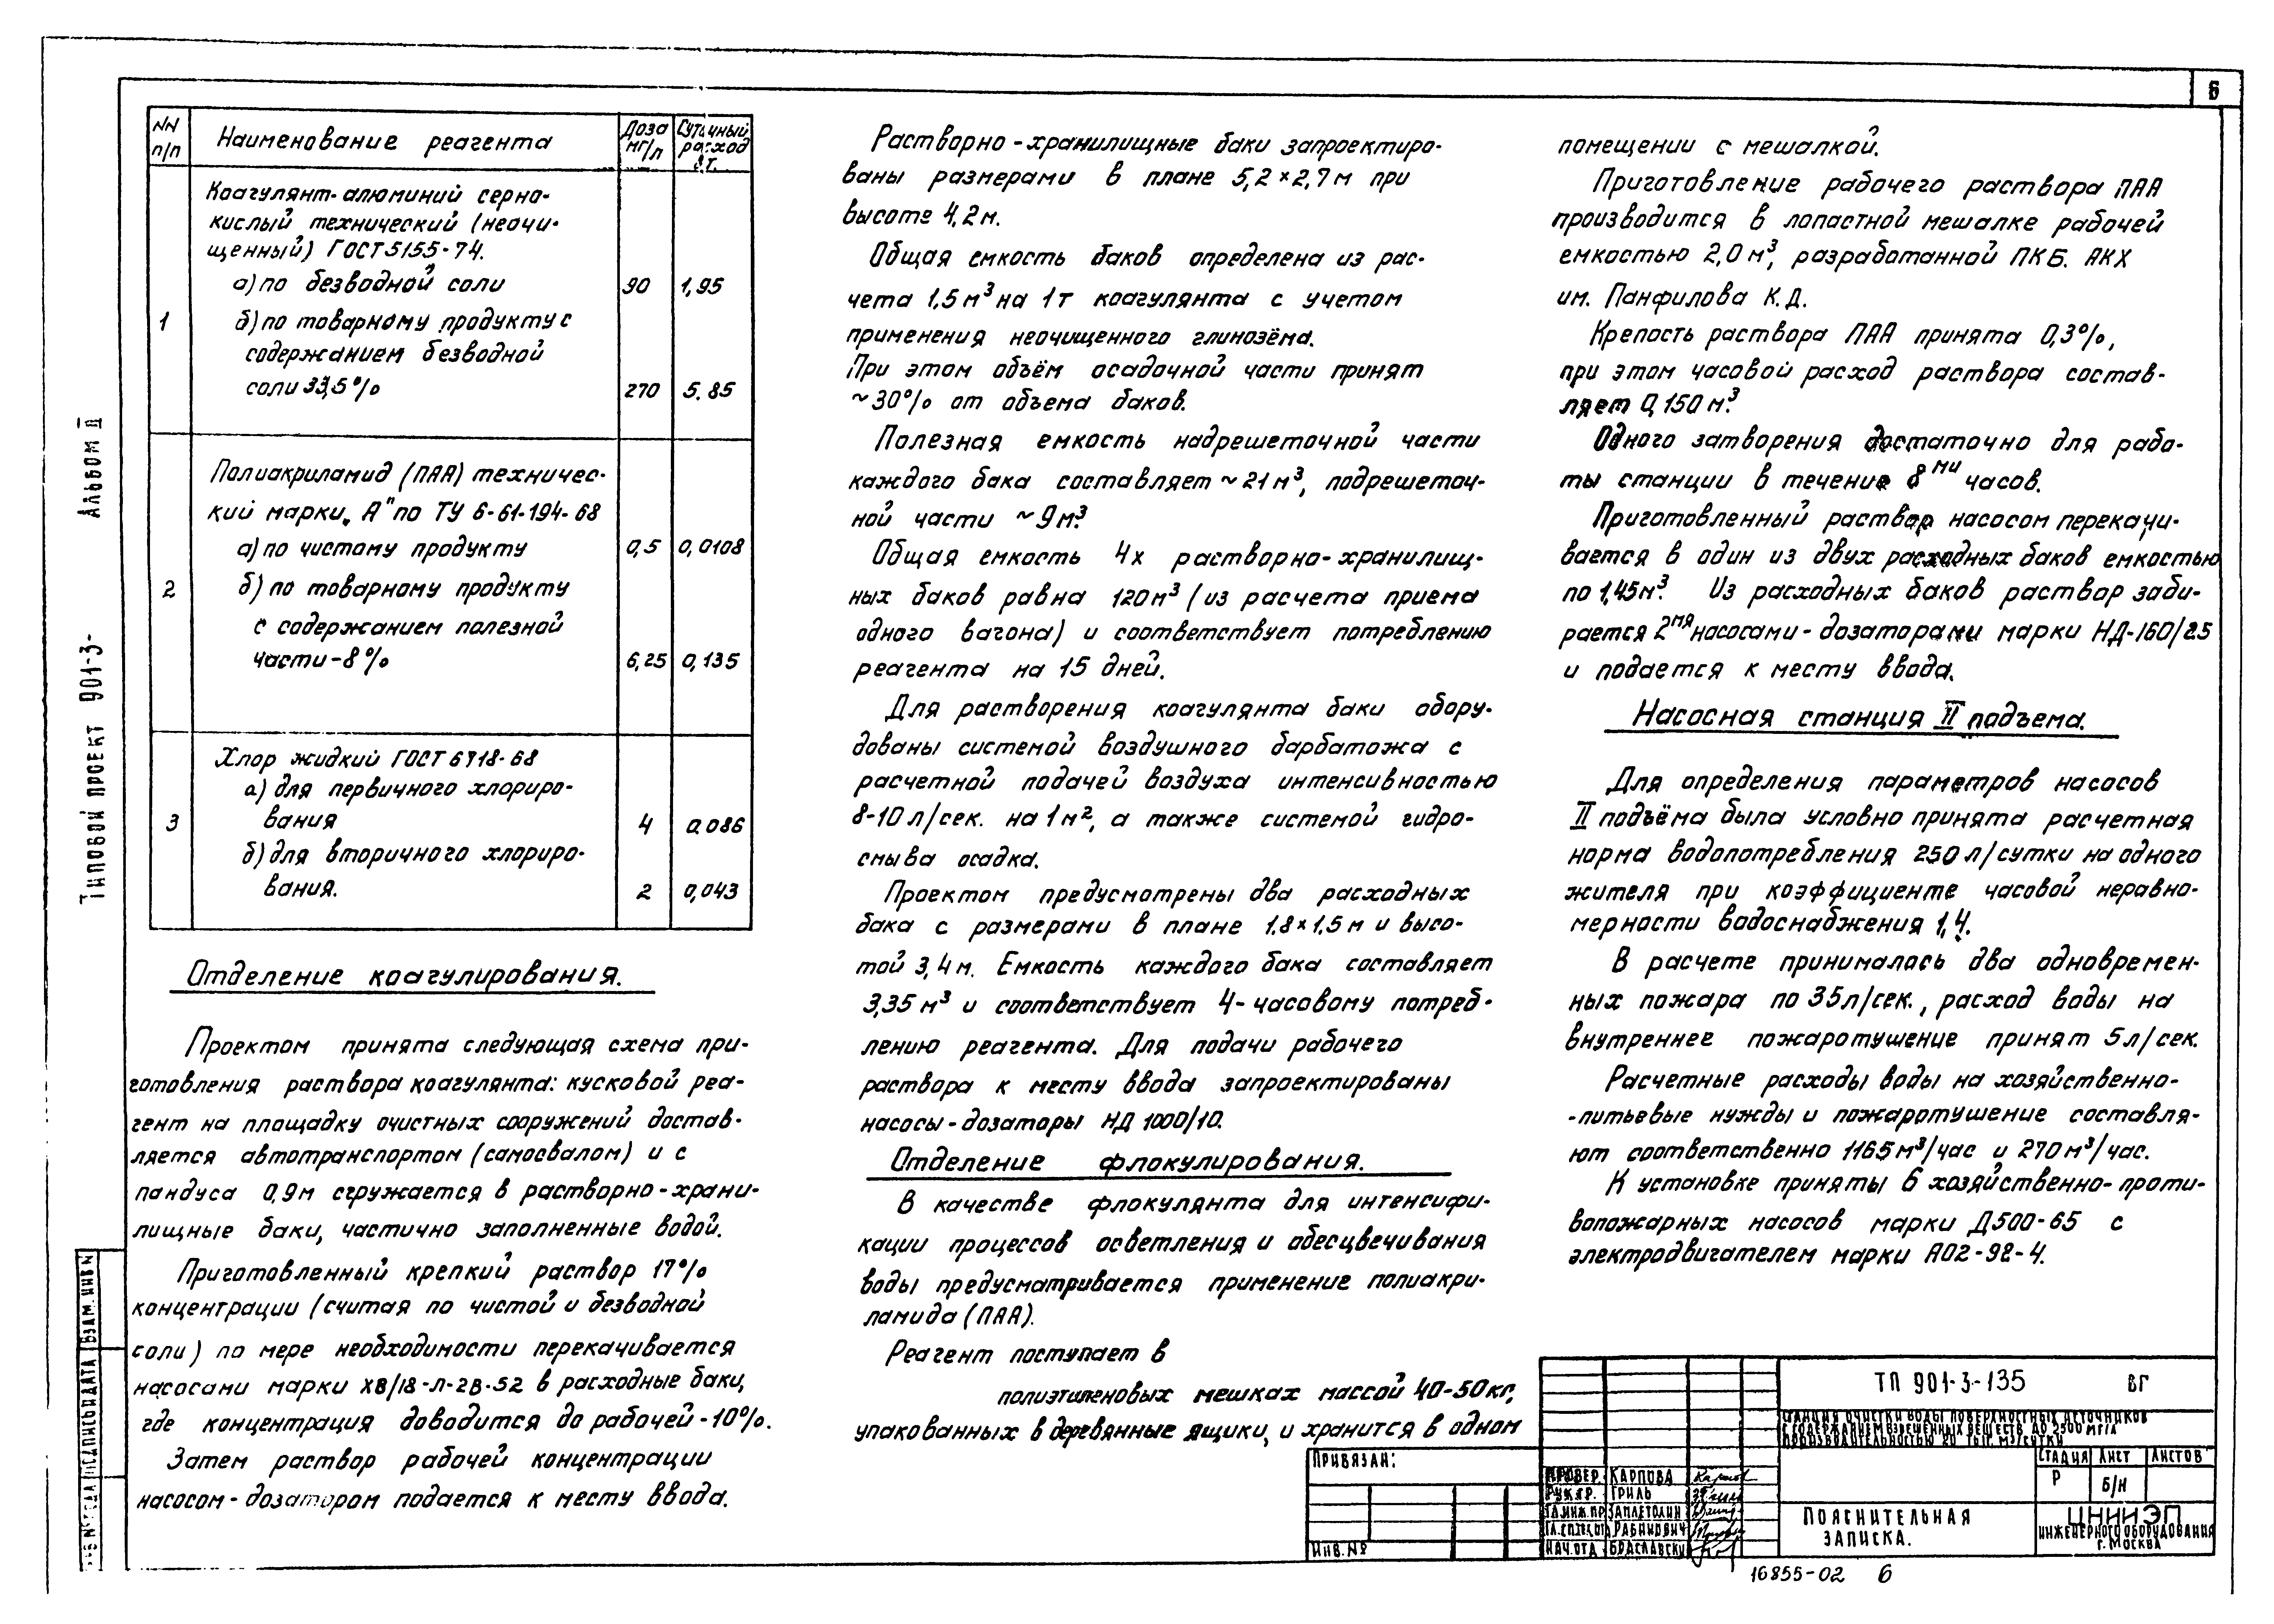 6
NN п/п
Наименование реагента
Доза мг/л
Суточный расход т.
1
Коагулянт-алюминий серно-
кислый технический (неочи-
щенный) ГОСТ 5155-74.
а) по безводной соли 90 1,95
б) по товарному продукту с
содержанием безводной
соли 33,5% 270 5.85
2
Полиакриламид (ПАА) техничес-
кий марки „А" по ТУ 6-61-194-68
а) по чистому продукту 0,5 0,0108
б) по товарному продукту
с содержанием полезной
части-8% 6,25 0,135
3
Хлор жидкий ГОСТ 6718-68
а) для первичного хлориро-
вания 4 0.086
б) для вторичного хлориро-
вания. 2 0,043
Отделение коагулирования.
Проектом принята следующая схема при-
готовления раствора коагулянта: кусковой реа-
гент на площадку очистных сооружений достав-
ляется автотранспортом (самосвалом) и с
пандуса 0,9м сгружается в растворно-храни-
лищные баки, частично заполненные водой.
Приготовленный крепкий раствор 17%
концентрации (считая по чистой и безводной
соли) по мере необходимости перекачивается
насосами марки ХВ/18-Л-2В-52 в расходные баки,
где концентрация доводится до рабочей-10%.
Затем раствор рабочей концентрации
насосом-дозатором подается к месту ввода.
Растворно-хранилищные баки запроектиро-
ваны размерами в плане 5,2×2,7м при
высоте 4,2м.
Общая емкость баков определена из рас-
чета 1,5м³ на 1т коагулянта с учетом
применения неочищенного глинозёма.
При этом объём осадочной части принят
~30% от объема баков.
Полезная емкость надрешеточной части
каждого бака составляет ~21м³, подрешеточ-
ной части ~9м³.
Общая емкость 4х растворно-хранилищ-
ных баков равна 120м³ (из расчета приема
одного вагона) и соответствует потреблению
реагента на 15 дней.
Для растворения коагулянта баки обору-
дованы системой воздушного барбатожа с
расчетной подачей воздуха интенсивностью
8-10 л/сек. на 1м², а также системой гидро-
смыва осадка.
Проектом предусмотрены два расходных
бака с размерами в плане 1.8×1.5м и высо-
той 3,4м. Емкость каждого бака составляет
3,35м³ и соответствует 4-часовому потреб-
лению реагента. Для подачи рабочего
раствора к месту ввода запроектированы
насосы-дозаторы НД 1000/10.
Отделение флокулирования.
В качестве флокулянта для интенсифи-
кации процессов осветления и обесцвечивания
воды предусматривается применение полиакри-
ламида (ПАА).
Реагент поступает в
полиэтиленовых мешках массой 40-50кг,
упакованных в деревянные ящики, и хранится в одном
помещении с мешалкой.
Приготовление рабочего раствора ПАА
производится в лопастной мешалке рабочей
емкостью 2,0м³, разработанной ПКБ. АКХ
им. Панфилова К.Д.
Крепость раствора ПАА принята 0,3%,
при этом часовой расход раствора состав-
ляет 0,150м³.
Одного затворения достаточно для рабо-
ты станции в течение 8ми часов.
Приготовленный раствор насосом перекачи-
вается в один из двух расходных баков емкостью
по 1,45м³. Из расходных баков раствор заби-
рается 2мя насосами-дозаторами марки НД-160/25
и подается к месту ввода.
Насосная станция II подъема.
Для определения параметров насосов
II подъёма была условно принята расчетная
норма водопотребления 250 л/сутки на одного
жителя при коэффициенте часовой неравно-
мерности водоснабжения 1,4.
В расчете принималось два одновремен-
ных пожара по 35л/сек., расход воды на
внутреннее пожаротушение принят 5л/сек.
Расчетные расходы воды на хозяйственно-
-питьевые нужды и пожаротушение составля-
ют соответственно 1165м³/час и 270м³/час.
К установке приняты 6 хозяйственно-проти-
вопожарных насосов марки Д500-65 с
электродвигателем марки А02-92-4.
Альбом II
Типовой проект 901-3-
Взам. инв N
Подпись и дата
Привязан:
Инв. №
Провер. Карпова
Рук.гр. Гриль
Гл.инж.пр Заплетохин
Гл.спец.от Рабинович
Нач.отд
ТП 901-3-135 ВГ
Станция очистки воды поверхностных источников
с содержанием взвешенных веществ до 2500 мг/л
производительностью 20 тыс. м3/сутки
Стадия Лист Листов
Р б/н
Пояснительная
записка.
ЦНИИЭП
инженерного оборудования
г. Москва
16855-02 6